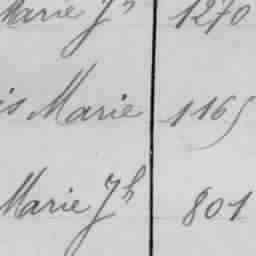 Marie Jh 1270
is Marie 1165
Marie Jh 801